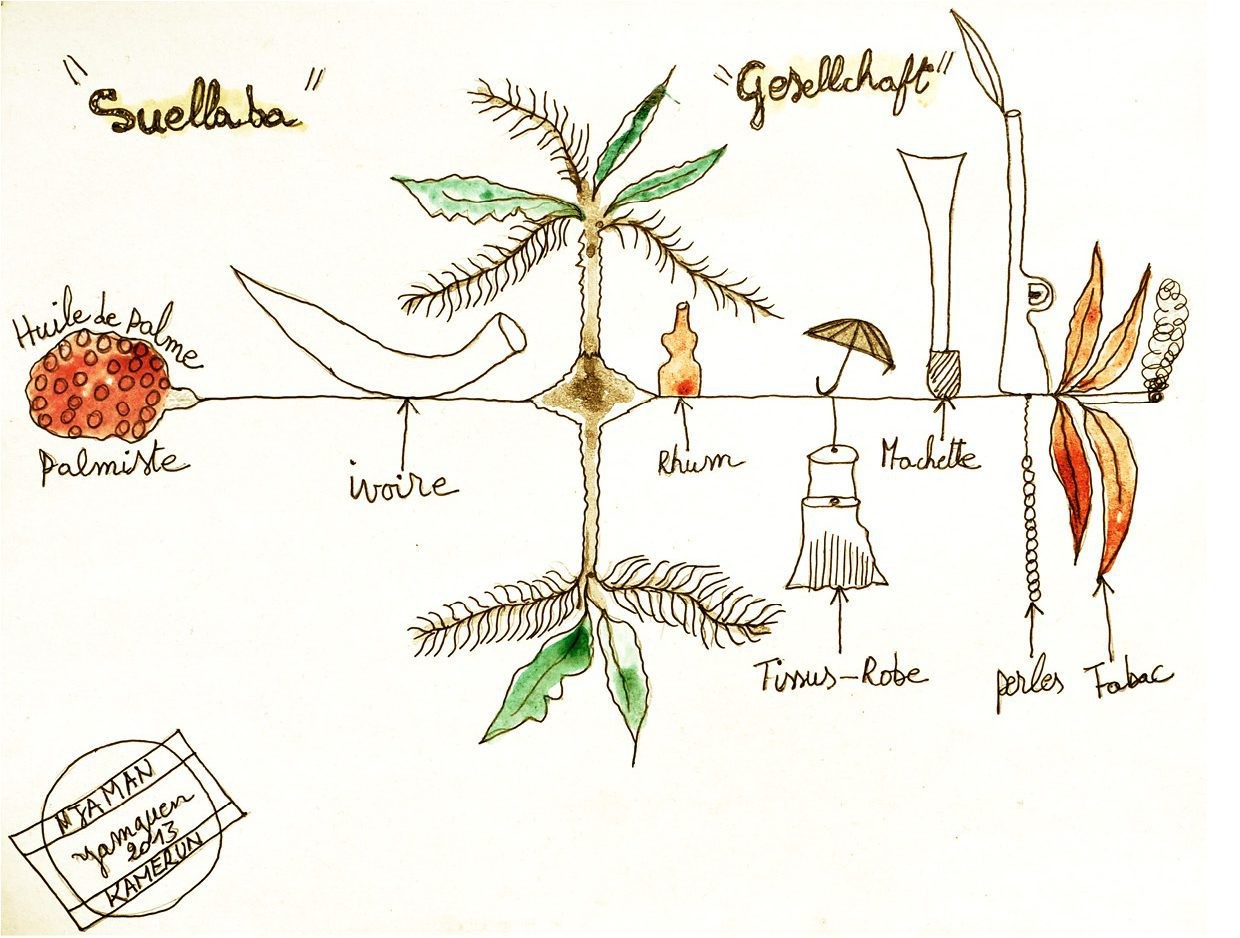 "Suellaba"
"Gesellchaft"
Huile de Palme
Palmiste
ivoire
Rhum
Machette
Tissus-Robe
perles
Tabac
NJAMAN
yamguen
2013
KAMERUN